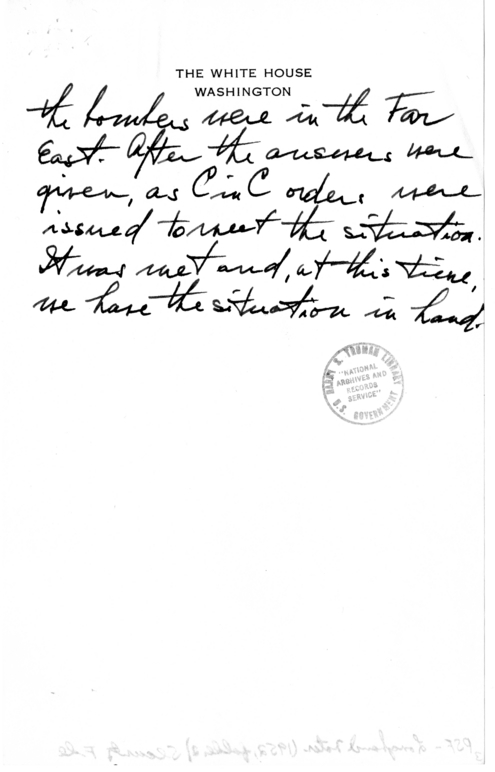 THE WHITE HOUSE
WASHINGTON
the bombers were in the Far
East. After the answers were
given, as C in C orders were
issued to meet the situation.
It was met and, at this time,
we have the situation in hand.
HARRY S. TRUMAN LIBRARY
"NATIONAL
ARCHIVES AND
RECORDS
SERVICE"
U.S. GOVERNMENT